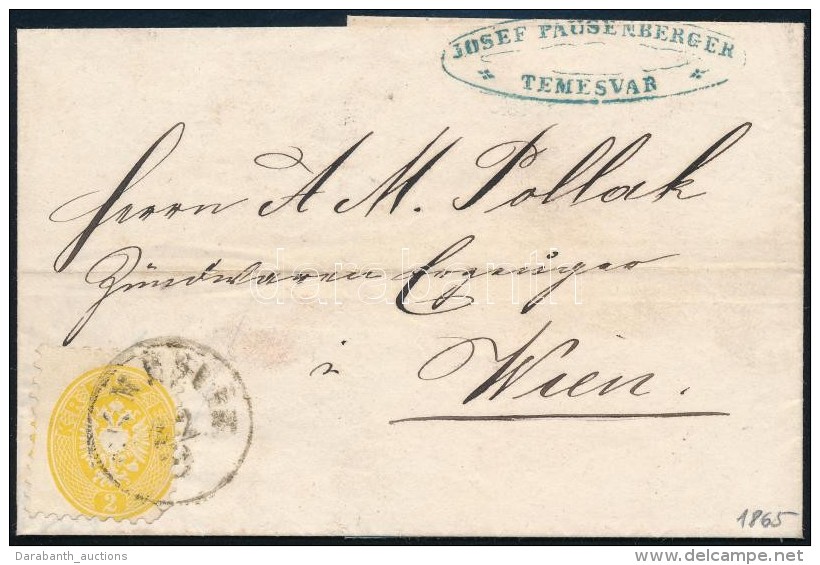 JOSEF PAUSENBERGER
TEMESVAR
Herrn A M. Pollak
Zündwaren Erzeuger
in
Wien.
darabanth
KREUZER
2
1865
Darabanth_auctions
www.delcampe.net